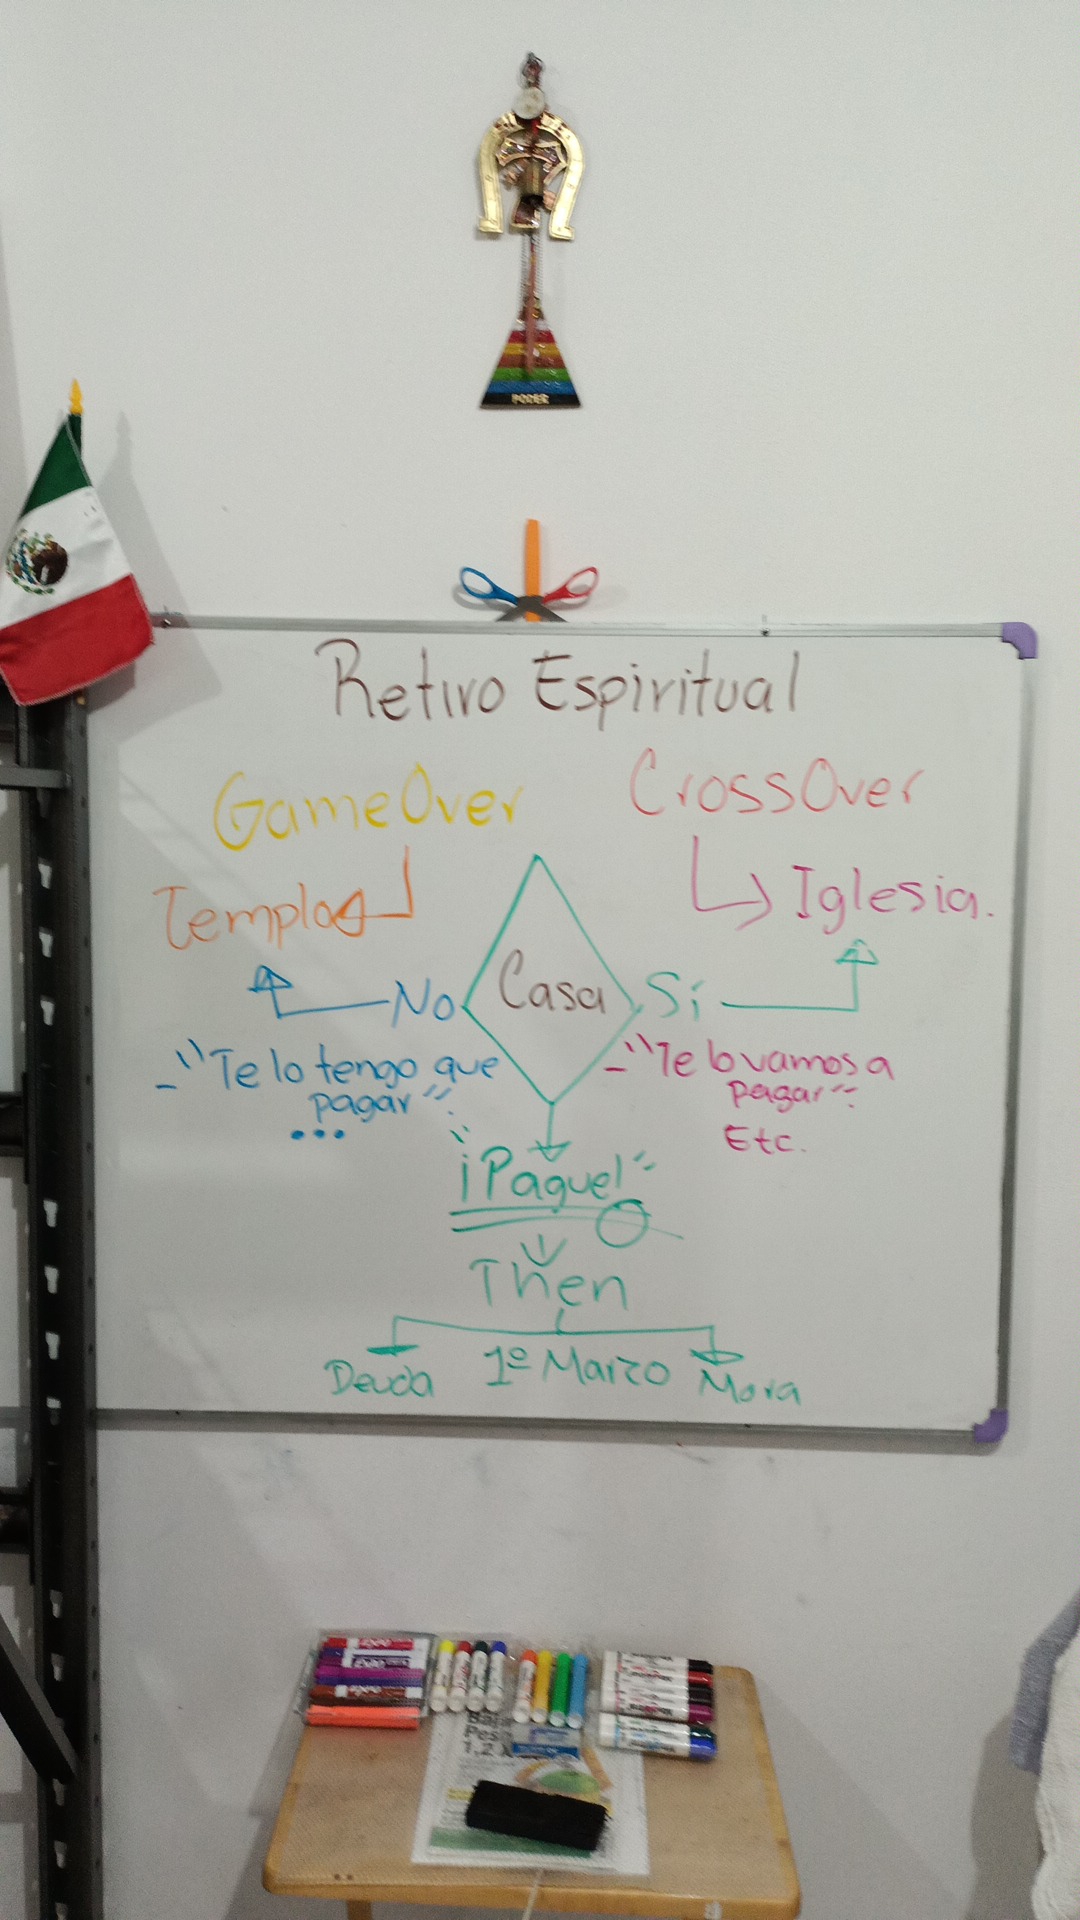 PODER
Retiro Espiritual
GameOver
CrossOver
Templo
Iglesia.
No
Casa
Sí
- "Te lo tengo que
pagar"
...
- "Te lo vamos a
pagar"
Etc.
"¡Pague!"
Then
Deuda
1º Marzo
Mora
EXPO
EXPO
EXPO